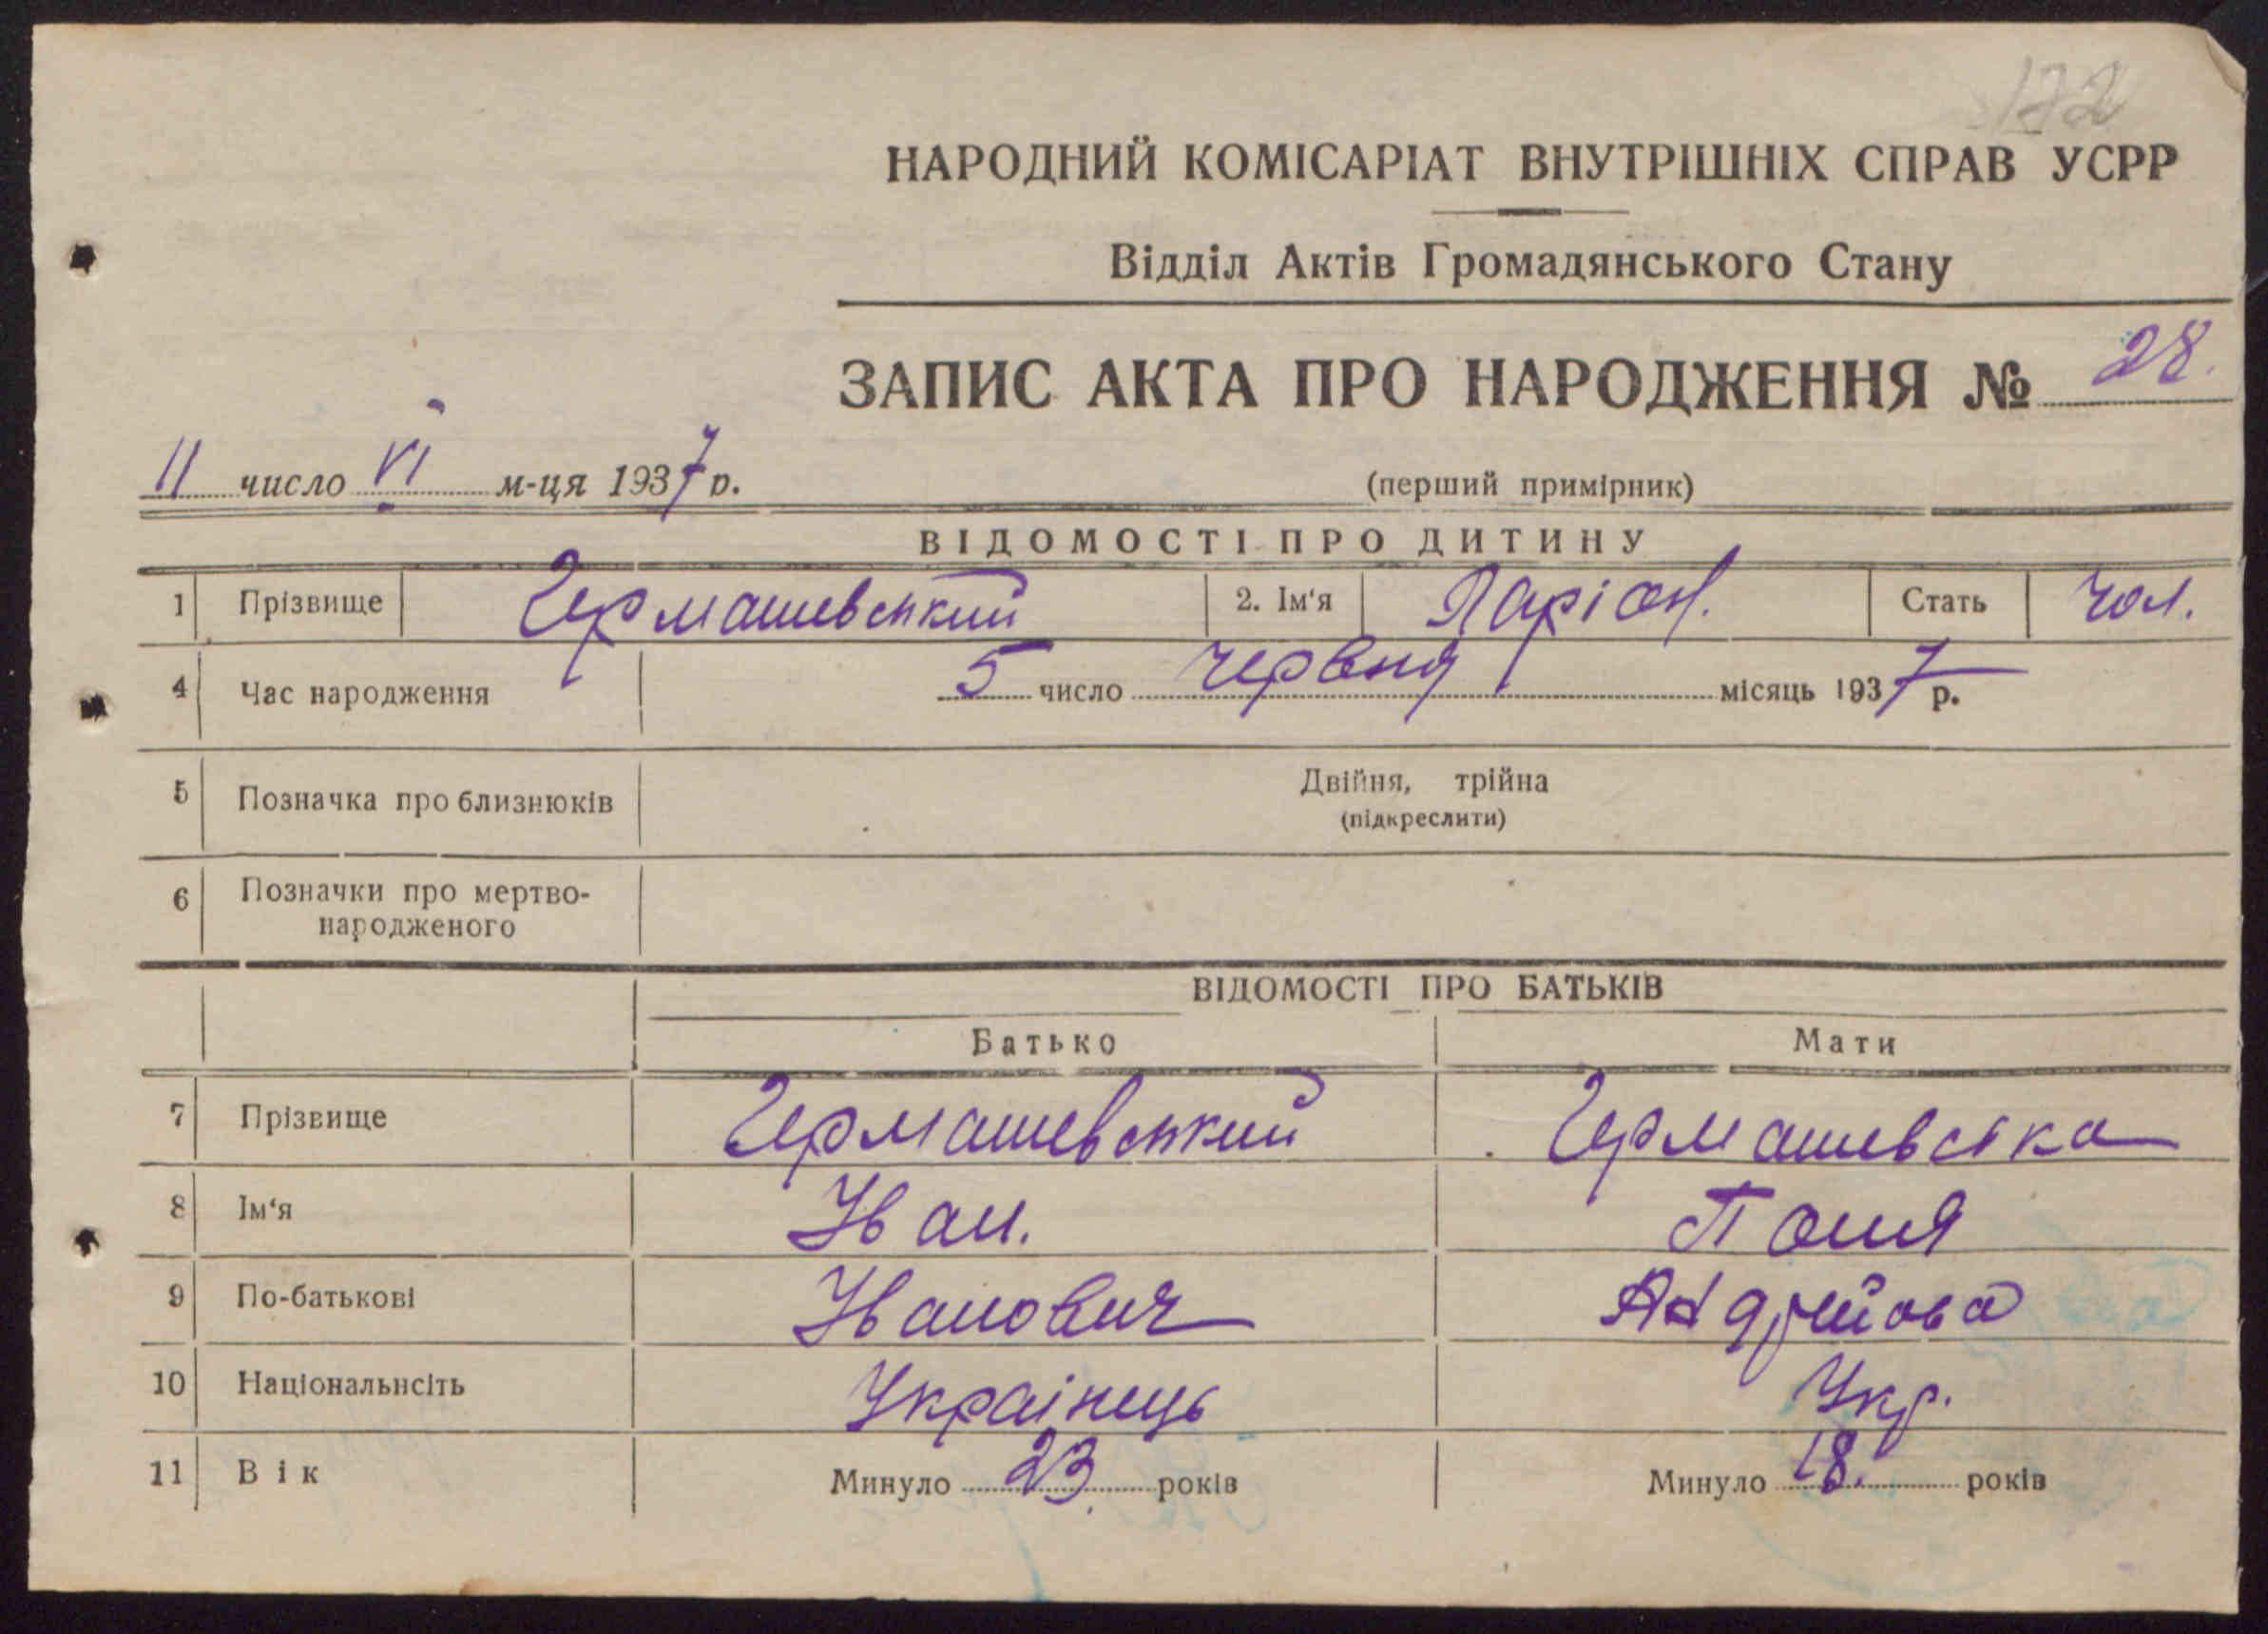 172
НАРОДНИЙ КОМІСАРІАТ ВНУТРІШНІХ СПРАВ УСРР
Відділ Актів Громадянського Стану
ЗАПИС АКТА ПРО НАРОДЖЕННЯ № 28.
11 число VI м-ця 1937 р.
(перший примірник)
ВІДОМОСТІ ПРО ДИТИНУ
1 Прізвище Гермашевський 2. Ім‘я Ларіон. Стать чол.
4 Час народження 5 число червня місяць 1937 р.
5 Позначка про близнюків Двійня, трійна
(підкреслити)
6 Позначки про мертво-
народженого
ВІДОМОСТІ ПРО БАТЬКІВ
Батько Мати
7 Прізвище Гермашевський Гермашевська
8 Ім‘я Іван. Поля
9 По-батькові Іванович Андрійова
10 Національнсіть Українець Укр.
11 Вік Минуло 23 років Минуло 18. років